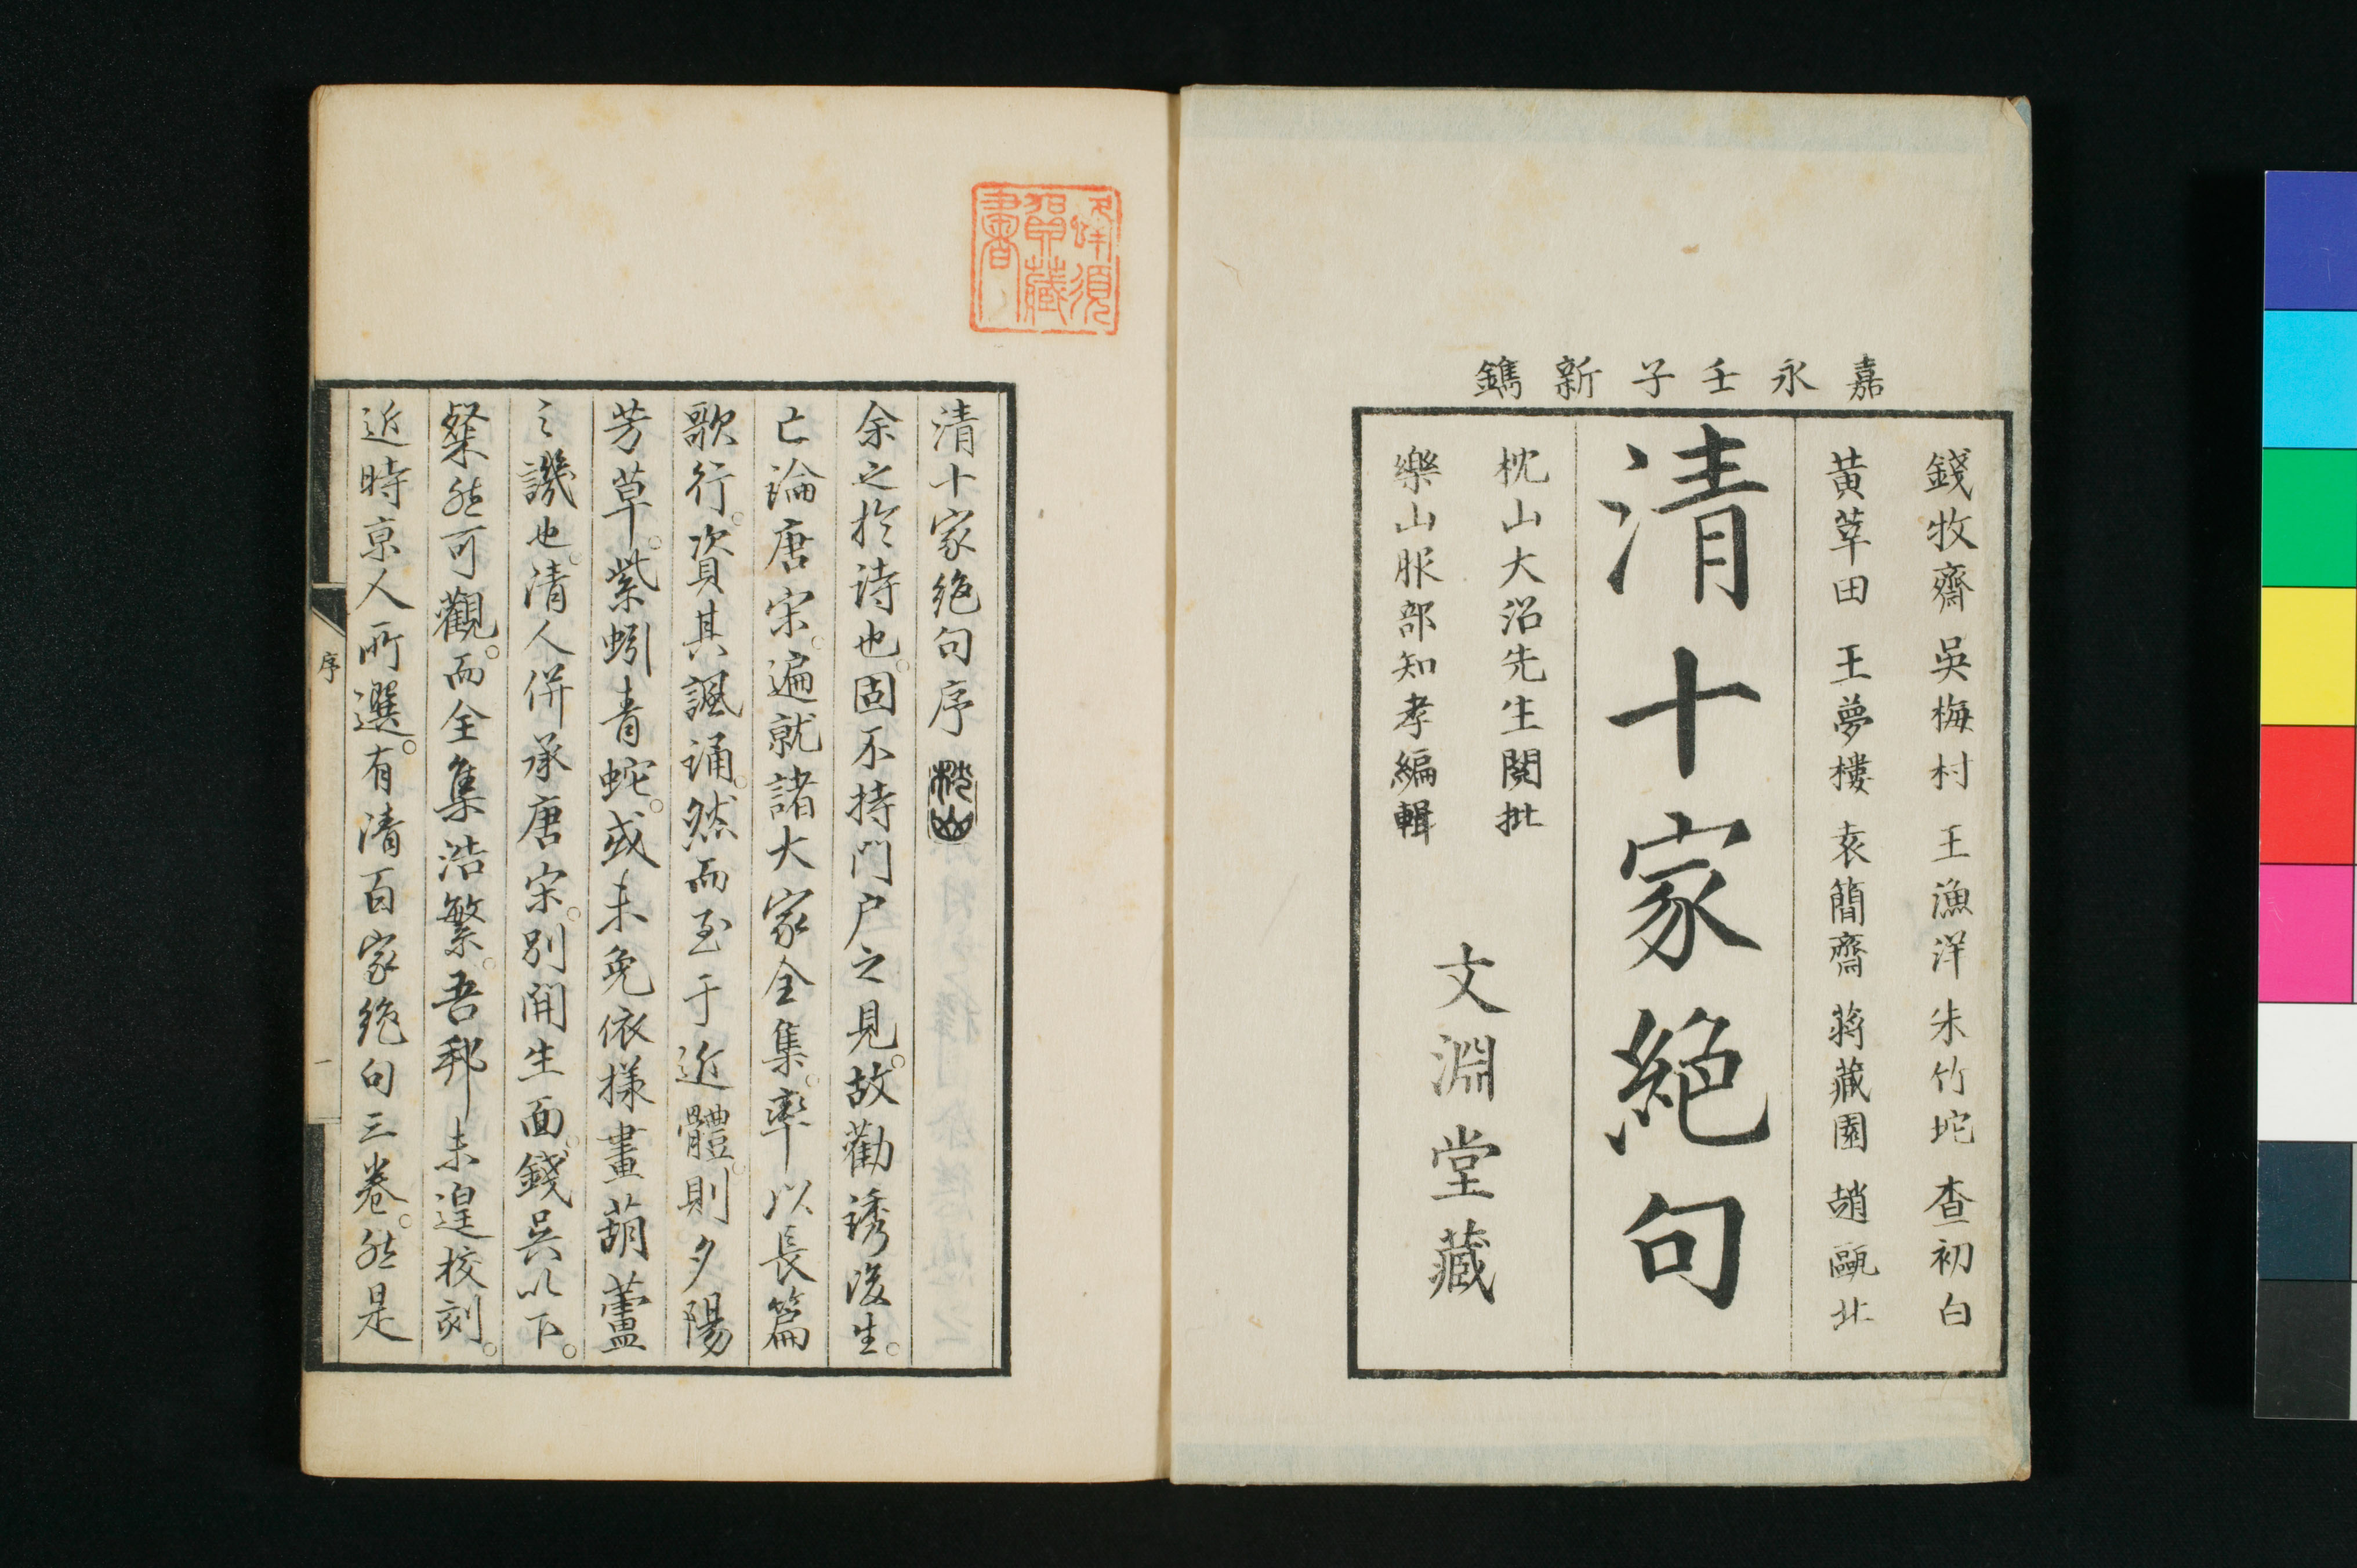 嘉永壬子新鐫
錢牧齋 吳梅村 王漁洋 朱竹垞 查初白
黃莘田 王夢樓 袁簡齋 蔣藏園 趙甌北
清十家絕句
枕山大沼先生閱批
樂山服部知孝編輯
文淵堂藏
清十家絶句序
枕山
余之於诗也。固不持門户之見。故勸誘後生。
亡論唐宋。遍就諸大家全集。率以長篇
歌行。資其諷誦。然而至于近體。則夕陽
芳草。紫蚓青蛇。或未免依様畫葫蘆
之譏也。清人併承唐宋。別開生面。錢吳以下。
粲然可觀。而全集浩繁。吾邦未遑校刻。
近時京人所選。有清百家絶句三卷。然是
序
一
蜂須賀藏書